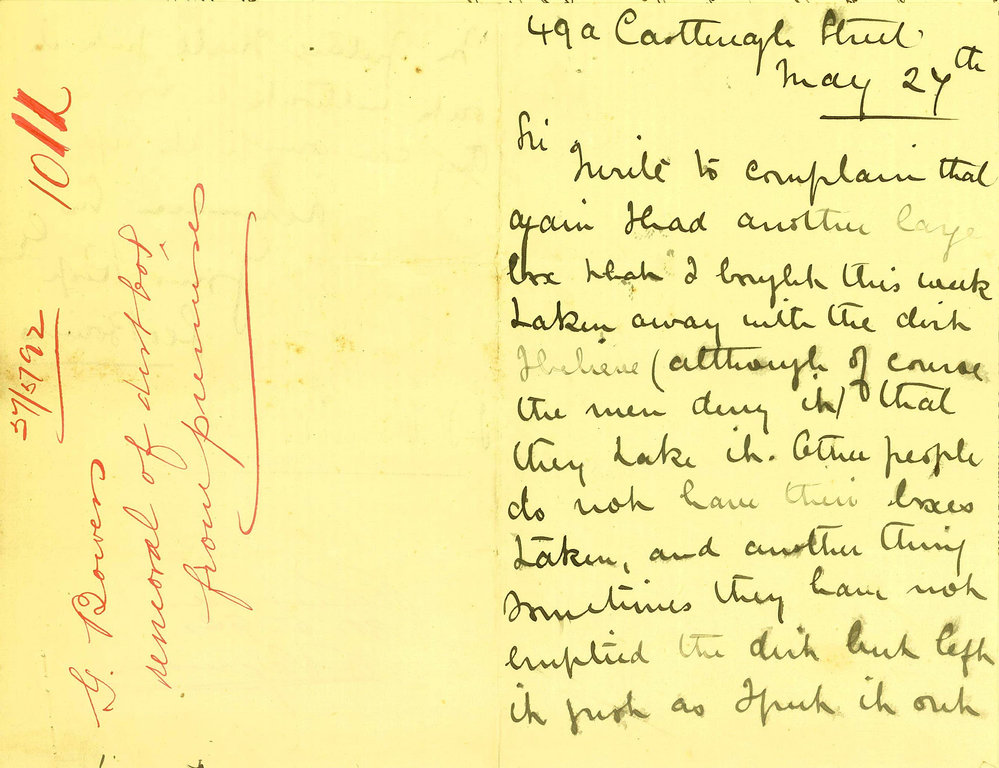 49a Castlereagh Street
May 27th
Sir
I write to complain that
again I had another large
box that I bought this week
taken away with the dirt
I believe (although of course
the men deny it) that
they take it. Other people
do not have their boxes
taken, and another thing
sometimes they have not
emptied the dirt but left
it just as I put it out
G. Bowers
removal of dirt box
from premises
27/5/92